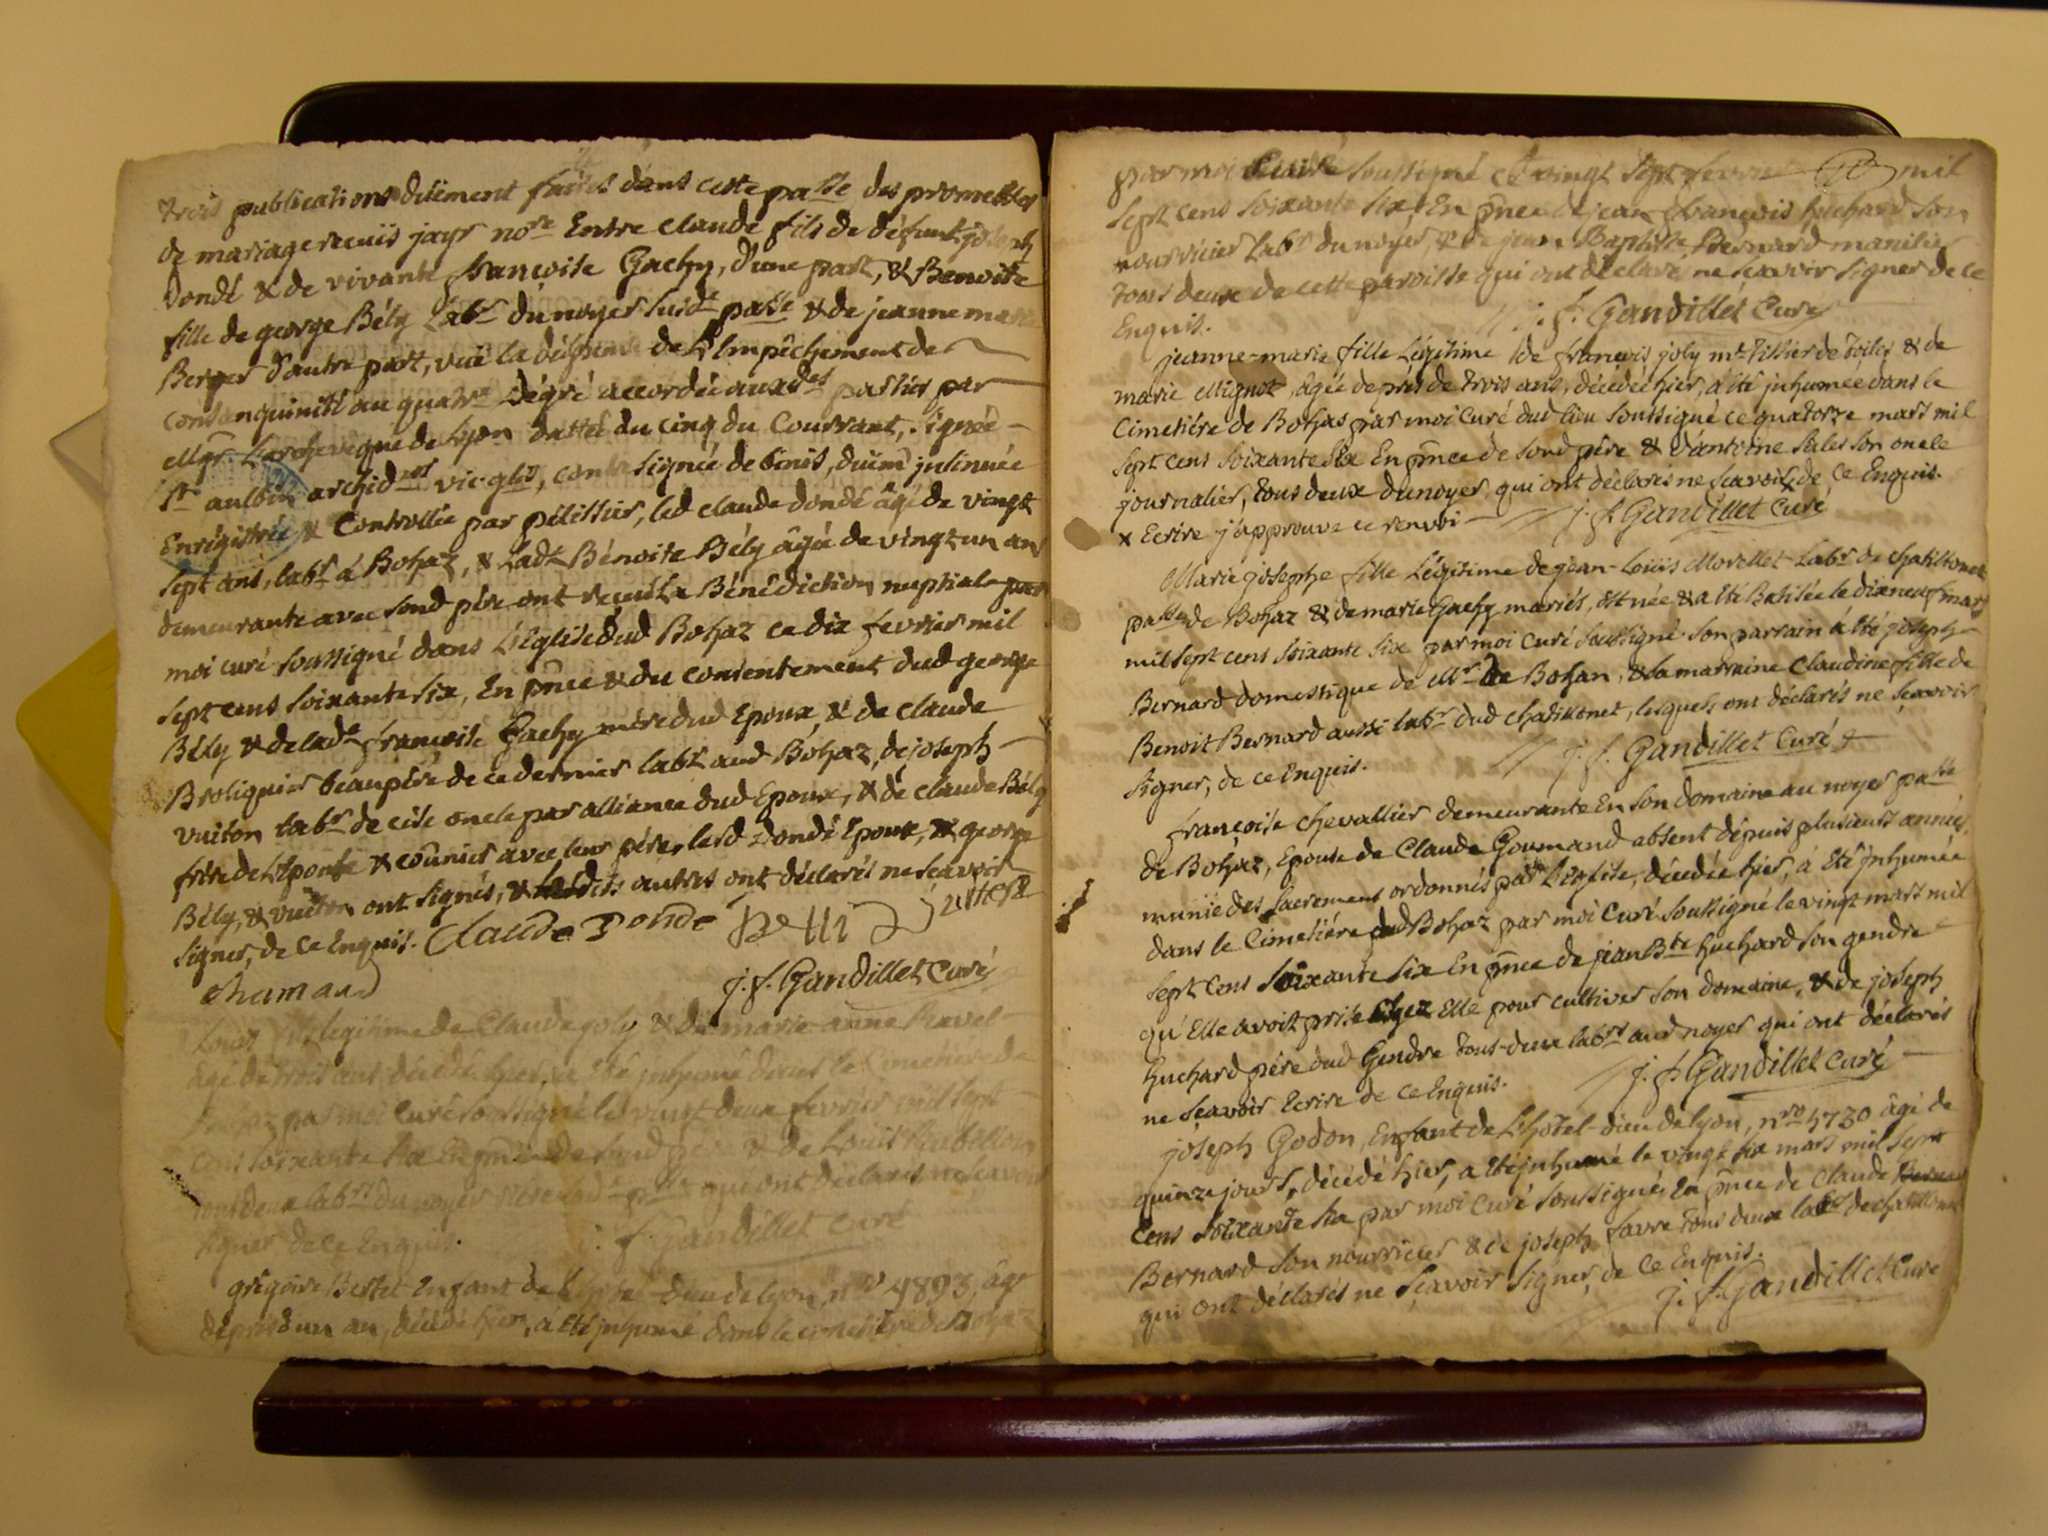 trois publications düement faites dans cette pasße des promesses
de mariage recuis jayr nore Entre claude fils de défunt joseph
dondé & de vivante françoise Gachy, d'une part, & Benoite
fille de george Bély Labr du noyer susde paße & de jeanne marie
Berger d'autre part, vuë la dispense de L'Impêchement de
consanguinité au quatre Dégré accordée auxdes parties par
Mgr L'archevêque de Lyon dattée du cinq du Courrant, signée
St aulbin archid vic. glis, contresignée de Cenis, düemt jnsinuée
Enrégistrée & Controllée par pélissier, led claude dondé âgé de vingt
sept ans, labr à Bohaz, & Ladte Bénoite Bély âgée de vingt un an
demeurante avec sond pére ont recuë La Bénédiction nuptiale par
moi curé soussigné dans L'Eglise dud Bohaz ce dix fevrier mil
sept cens soixante six, En pnce & du consentement dud george
Bély & de lade françoise Gachy mére dud Epoux, & de claude
Broliquier beaupére de ce dernier labr aud Bohaz, de joseph
vuiton labr de cise oncle par alliance dud Epoux, & de claude Bély
frére de L'Epouse & coûnier avec leur pére, lesd Dondé Epoux, & george
Bély, & vuiton ont signés, & lesdits autres ont déclarés ne sçavoir
signer, de ce Enquis. Claude Donde Belli
chamaud
j. f. Gandillet Curé
Louis fils legitime de Claude joly & de marie anne Ravel
âgé de trois ans décédé hier, a été jnhumé dans le Cimetiére de
Bohaz par moi Curé soussigné le vingt deux fevrier mil sept
cens soixante six En pnce de sond pére & de Louis
tous deux labrs du noyer qui ont declarés ne sçavoir
signer de ce Enquis. j. f. Gandillet curé
grégoire Bertet Enfant de L'hotel-dieu de lyon, nro 4893, âgé
de près d'un an, décédé hier, a été jnhumé dans le cimetiére de Bohaz
par moi Curé soussigné ce vingt sept fevrier mil
sept cens soixante six En pnce de jean françois huchard son
nourricier Labr du noyer, & de jean Baptiste Bernard manilier
tous deux de cette paroisse qui ont déclarés ne sçavoir signer de ce
Enquis. j. f. Gandillet Curé
jeanne-marie fille Légitime de françois joly mtre Tissier de toiles & de
marie Mignot, âgée de près de trois ans, décédée hier, a été jnhumée dans le
Cimetiére de Bohas par moi Curé dud lieu soussigné ce quatorze mars mil
sept cens soixante six En pnce de sond pére & d'antoine Sales son oncle
journalier, tous deux du noyer, qui ont déclarés ne sçavoir x de ce Enquis.
x Ecrire j'approuve ce renvoi j. f. Gandillet Curé
Marie josephe fille Légitime de jean-Louis Morellet Labr de chatillonet
paße de Bohaz & de marie Gachy mariés, est née & a été Batisée le dixneuf mars
mil sept cens soixante six par moi curé soussigné son parrain a été joseph
Bernard domestique de Mr De Bohan, & sa marraine Claudine fille de
Benoit Bernard aussi labr dud chatillonet, lesquels ont déclarés ne sçavoir
signer, de ce Enquis. j. f. Gandillet Curé
françoise Chevallier demeurante En son domaine au noyer paße
de Bohaz, Epouse de Claude Goumand absent dépuis plusieurs années,
munie des sacremens ordonnés par L'Eglise, décédée hier, a été jnhumée
dans le Cimetiére dud Bohaz par moi Curé soussigné le vingt mars mil
sept cens soixante six En pnce de jean Bte huchard son gendre
qu'Elle avoit prise chez Elle pour cultiver son domaine, & de joseph
huchard pére dud Gendre tous-deux labrs aud noyer qui ont déclarés
ne sçavoir Ecrire de ce Enquis. j. f. Gandillet Curé
joseph Godon, Enfant de L'hôtel-dieu de lyon, nro 5730 âgé de
quinze jours, décédé hier, a été jnhumé le vingt six mars mil sept
cens soixante six par moi Curé soussigné, En pnce de Claude
Bernard son nourricier & de joseph favre tous deux labrs de chatillonet
qui ont déclarés ne sçavoir signer, de ce Enquis.
j. f. Gandillet Curé